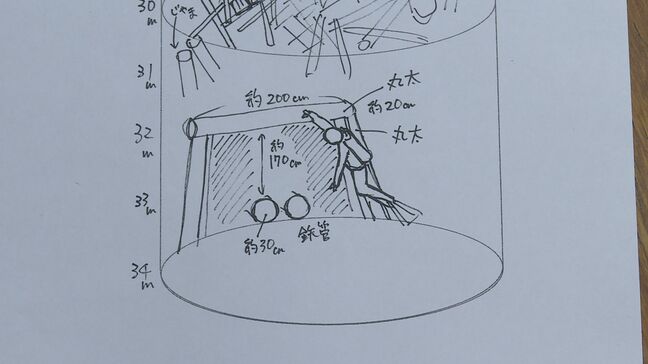 30
m
じゃま
31
m
約200cm
丸太
約20cm
32
m
丸太
約
170cm
33
m
約30cm
鉄管
34
m